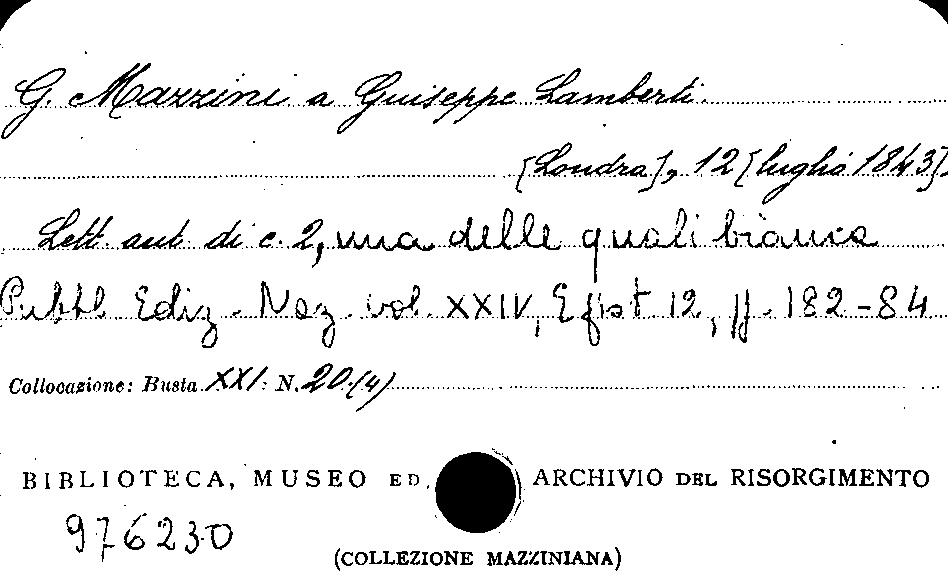 G. Mazzini a Giuseppe Lamberti.
[Londra], 12 [luglio 1843].
Lett. aut. di c. 2, una delle quali bianca
Pubbl. Ediz. Naz. vol. XXIV, Epist. 12, pp. 182-84
Collocazione: Busta XXI N. 20 (4)
BIBLIOTECA, MUSEO ED ARCHIVIO DEL RISORGIMENTO
976230
(COLLEZIONE MAZZINIANA)